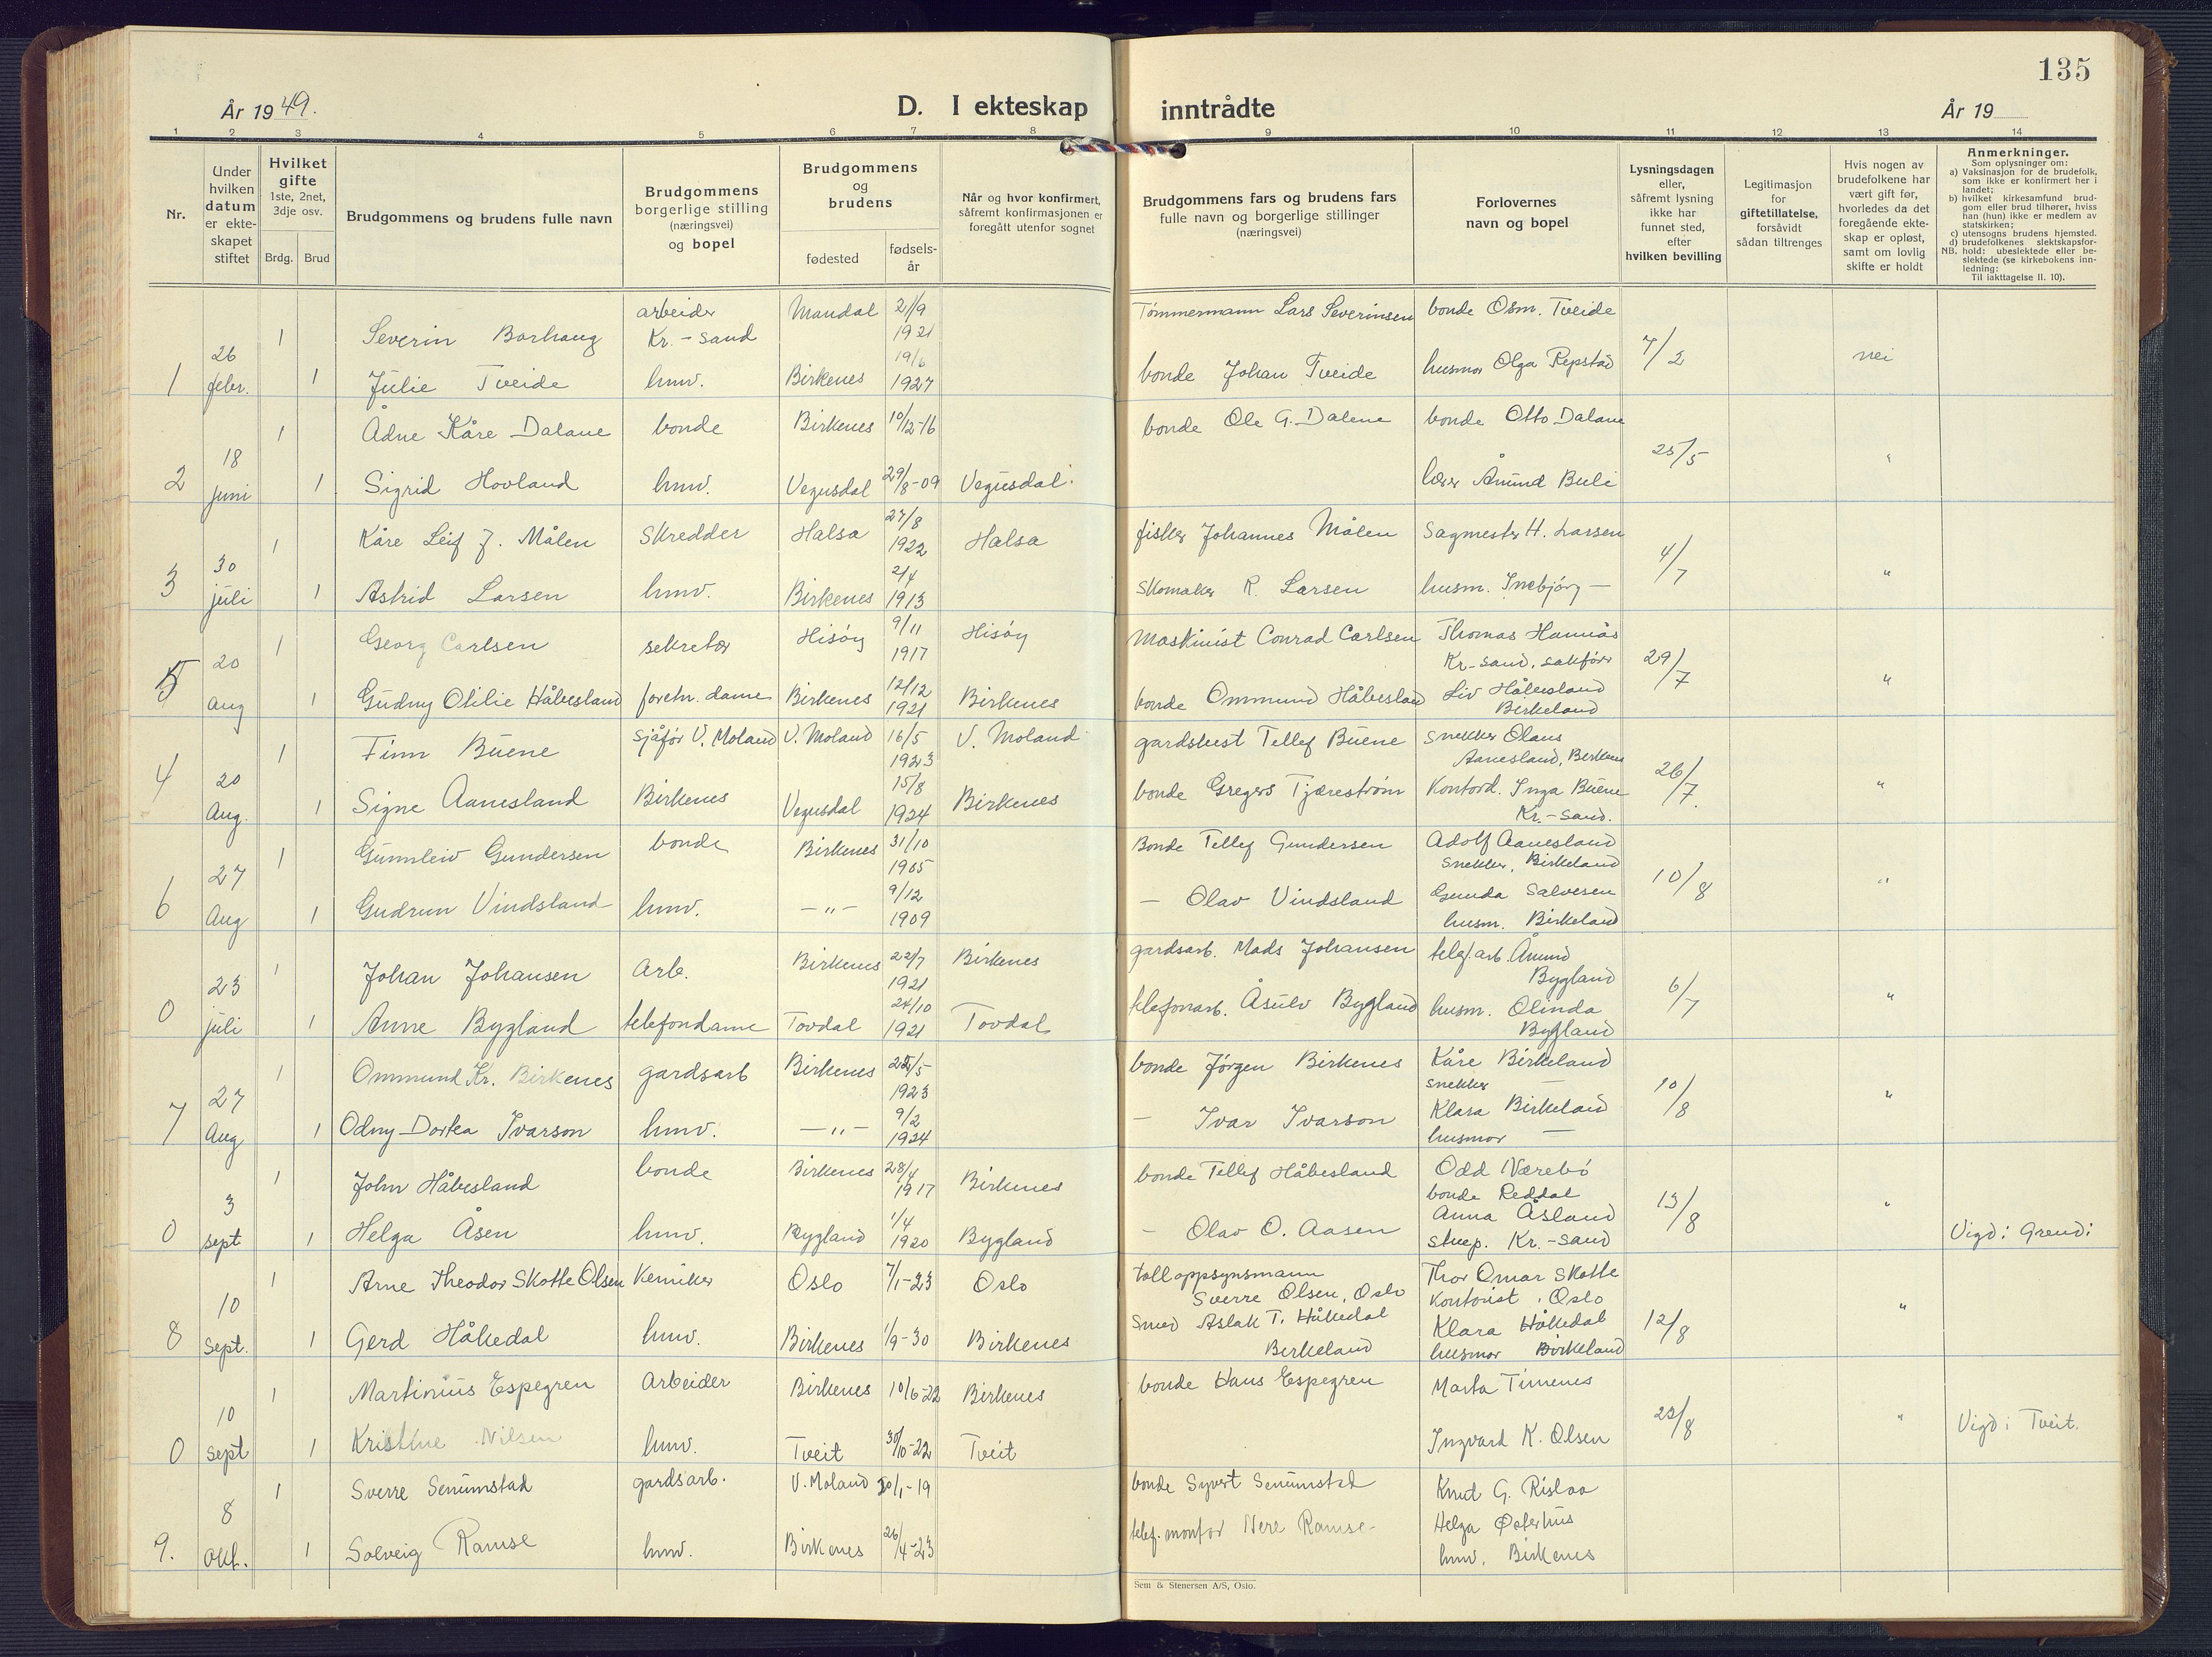 135
År 1949.
D. I ekteskap inntrådte
År 19
1 2 3 4 5 6 7 8 9 10 11 12 13 14
Nr.
Under hvilken datum er ekte- skapet stiftet
Hvilket gifte 1ste, 2net, 3dje osv.
Brdg. Brud
Brudgommens og brudens fulle navn
Brudgommens borgerlige stilling (næringsvei) og bopel
Brudgommens og brudens
fødested
fødsels- år
Når og hvor konfirmert, såfremt konfirmasjonen er foregått utenfor sognet
Brudgommens fars og brudens fars fulle navn og borgerlige stillinger (næringsvei)
Forlovernes navn og bopel
Lysningsdagen eller, såfremt lysning ikke har funnet sted, efter hvilken bevilling
Legitimasjon for giftetillatelse, forsåvidt sådan tiltrenges
Hvis nogen av brudefolkene har vært gift før, hvorledes da det foregående ekte- skap er opløst, samt om lovlig skifte er holdt
Anmerkninger.
Som oplysninger om:
a) Vaksinasjon for de brudefolk, som ikke er konfirmert her i landet;
b) hvilket kirkesamfund brud- gom eller brud tilhører, hviss han (hun) ikke er medlem av statskirken;
c) utensogns brudens hjemsted.
d) brudefolkenes slektskapsfor- hold: ubeslektede eller be- slektede (se kirkebokens inn- ledning:
NB.
Til iakttagelse II. 10).
1 26 febr. 1 Severin Borhaug arbeider Kr.-sand Mandal 21/9 1921 Tømmermann Lars Severinsen bonde Osm. Tveide 7/2 nei
1 Julie Tveide hmv. Birkenes 19/6 1927 bonde Johan Tveide husmor Olga Repstad
2 18 juni 1 Ådne Kåre Dalane bonde Birkenes 10/12-16 bonde Ole G. Dalene bonde Otto Dalane 25/5 "
1 Sigrid Hovland hmv. Vegusdal 29/8-09 Vegusdal. lærer Åmund Buli
3 30 juli 1 Kåre Leif J. Målen Skredder Halsa 27/8 1922 Halsa fisker Johannes Målen Sagmester H. Larsen 4/7 "
1 Astrid Larsen hmv. Birkenes 2/4 1913 Skomaker R. Larsen husm. Inebjørg —
5 20 Aug 1 Georg Carlsen sekretær Hisøy 9/11 1917 Hisøy Maskinist Conrad Carlsen Thomas Hannås Kr-sand, sakfører 29/7 "
1 Gudny Otilie Håbesland foretn. dame Birkenes 12/12 1921 Birkenes bonde Ommund Håbesland Liv Håbesland Birkeland
4 20 Aug. 1 Finn Buene Sjåfør V. Moland V. Moland 16/5 1923 V. Moland gardsbest Tellef Buene Snekker Olaus Aanesland, Birkenes 26/7. "
1 Signe Aanesland Birkenes Vegusdal 15/8 1924 Birkenes bonde Gregers Tjærestrøm Kontord. Inga Buene Kr.-sand.
6 27 Aug 1 Gunnleiv Gundersen bonde Birkenes 31/10 1905 Bonde Tellef Gundersen Adolf Aanesland Snekker, Birkeland 10/8 "
1 Gudrun Vindsland hmv. —"— 9/12 1909 — Olav Vindsland Gunda Salvesen husm. Birkeland
0 23 juli 1 Johan Johansen Arb. Birkenes 22/7 1921 Birkenes gardsarb. Mads Johansen telef.arb. Åmund Bygland 6/7 "
1 Anne Bygland telefondame Tovdal 24/10 1921 Tovdal telefonarb. Åsulv Bygland husm. Olinda Bygland
7 27 Aug 1 Ommund Kr. Birkenes gardsarb Birkenes /5 1923 bonde Jørgen Birkenes Kåre Birkeland snekker — 10/8 "
1 Odny Dortea Ivarson hmv. —"— 9/2 1924 — Ivar Ivarson Klara Birkeland husmor —
0 3 sept 1 John Håbesland bonde Birkenes 28/4 1917 Birkenes bonde Tellef Håbesland Odd Nærebø bonde Reddal 13/8 "
1 Helga Åsen hmv. Bygland 1/4 1920 Bygland — Olav O. Aasen Anna Åsland Kr.-sand Vigd i Grendi
8 10 Sept. 1 Arne Theodor Skotte Olsen Kemiker Oslo 7/1-23 Oslo tolloppsynsmann Sverre Olsen, Oslo Thor Omar Skotte Kontorist, Oslo 12/8 "
1 Gerd Håkedal hmv. Birkenes 1/9-30 Birkenes Smed Aslak T. Håkedal Birkeland Klara Håkedal husmor Birkeland
0 10 sept 1 Martinius Espegren Arbeider Birkenes 10/6-22 Birkenes bonde Hans Espegren Marta Timenes 22/8 "
1 Kristine Nilsen hmv. Tveit 30/10-22 Tveit Ingvard K. Olsen Vigd i Tveit.
9. 8 okt. 1 Sverre Senumstad gardsarb. V. Moland 20/1-19 bonde Syvert Senumstad Knut G. Rislaa
1 Solveig Ramse hmv. Birkenes 26/4-23 telef. montør Nere Ramse Helga Østerhus hmv. Birkenes
Sem & Stenersen A/S, Oslo.